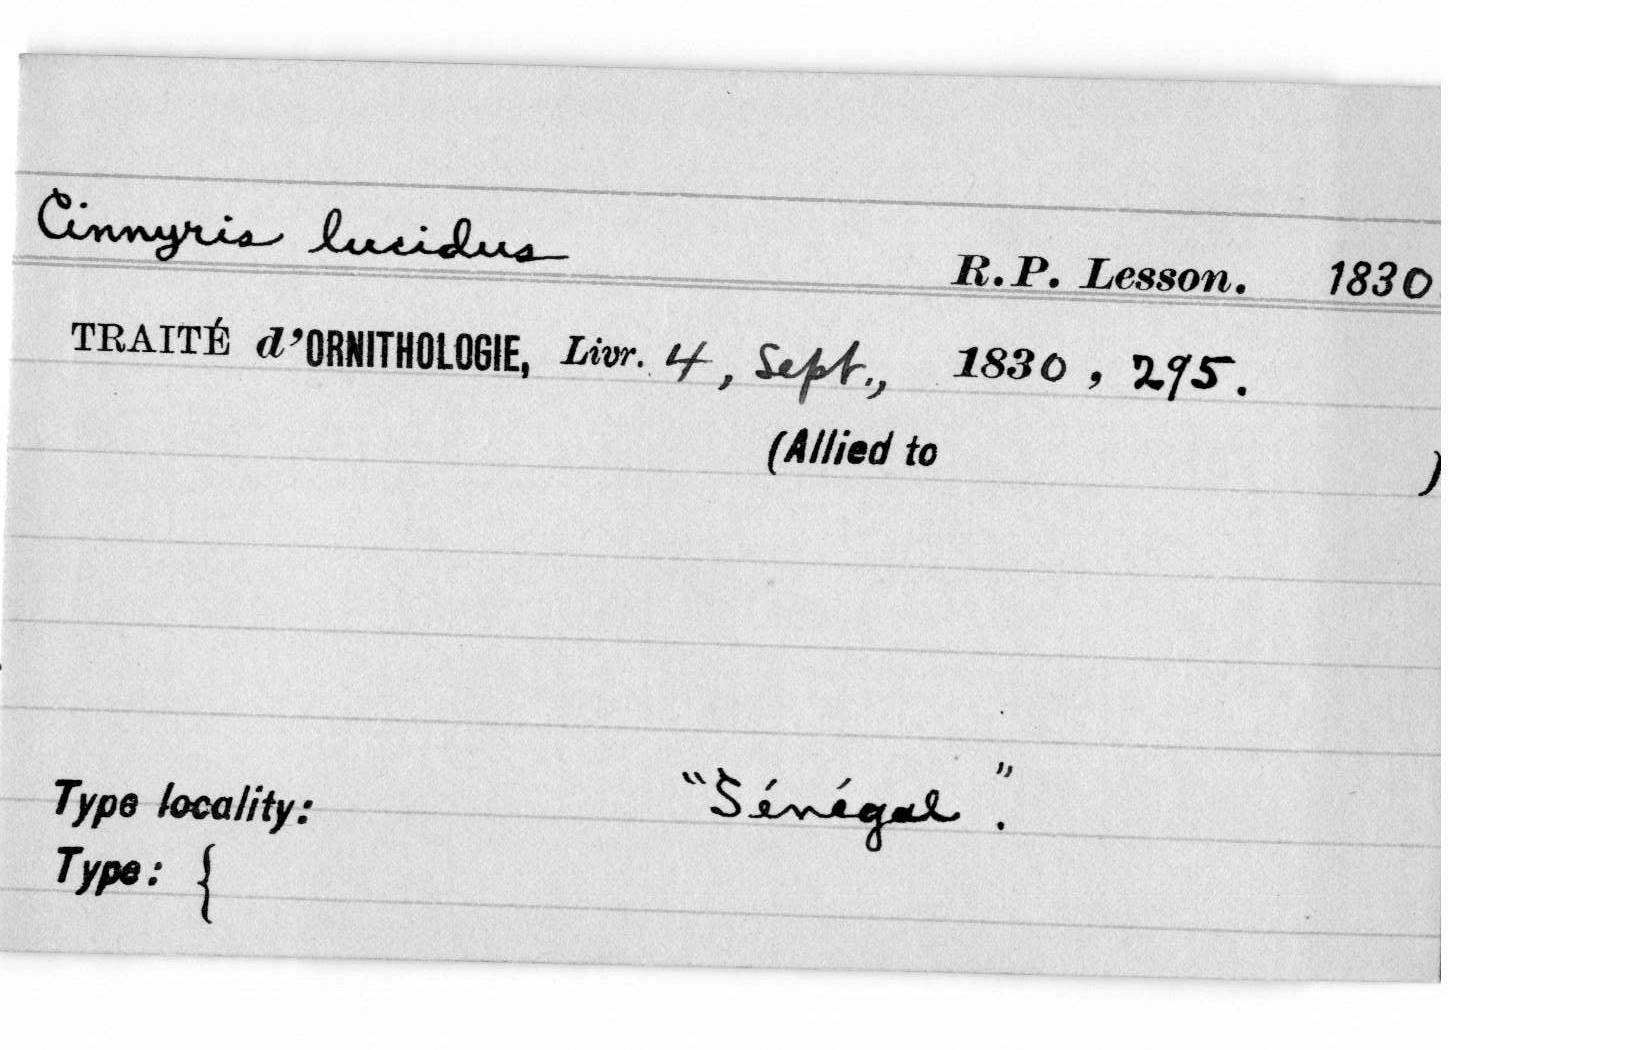 Cinnyris lucidus R.P. Lesson. 1830
TRAITÉ d'ORNITHOLOGIE, Livr. 4, Sept., 1830, 295.
(Allied to )
Type locality: "Sénégal".
Type: {